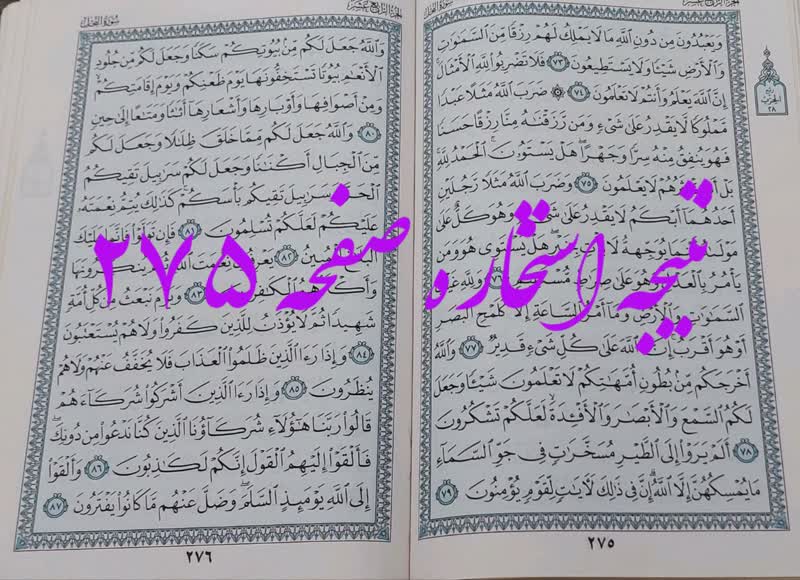 سُورَةُ النَّحْلِ
الجُزْءُ الرَّابِعَ عَشَرَ
وَيَعْبُدُونَ مِن دُونِ اللَّهِ مَا لَا يَمْلِكُ لَهُمْ رِزْقًا مِّنَ السَّمَاوَاتِ
وَالْأَرْضِ شَيْئًا وَلَا يَسْتَطِيعُونَ ٧٣ فَلَا تَضْرِبُوا لِلَّهِ الْأَمْثَالَ
إِنَّ اللَّهَ يَعْلَمُ وَأَنتُمْ لَا تَعْلَمُونَ ٧٤ ۞ ضَرَبَ اللَّهُ مَثَلًا عَبْدًا
مَّمْلُوكًا لَّا يَقْدِرُ عَلَىٰ شَيْءٍ وَمَن رَّزَقْنَاهُ مِنَّا رِزْقًا حَسَنًا
فَهُوَ يُنفِقُ مِنْهُ سِرًّا وَجَهْرًا هَلْ يَسْتَوُونَ الْحَمْدُ لِلَّهِ
بَلْ أَكْثَرُهُمْ لَا يَعْلَمُونَ ٧٥ وَضَرَبَ اللَّهُ مَثَلًا رَّجُلَيْنِ
أَحَدُهُمَا أَبْكَمُ لَا يَقْدِرُ عَلَىٰ شَيْءٍ وَهُوَ كَلٌّ عَلَىٰ
مَوْلَاهُ أَيْنَمَا يُوَجِّههُّ لَا يَأْتِ بِخَيْرٍ هَلْ يَسْتَوِي هُوَ وَمَن
يَأْمُرُ بِالْعَدْلِ وَهُوَ عَلَىٰ صِرَاطٍ مُّسْتَقِيمٍ ٧٦ وَلِلَّهِ غَيْبُ
السَّمَاوَاتِ وَالْأَرْضِ وَمَا أَمْرُ السَّاعَةِ إِلَّا كَلَمْحِ الْبَصَرِ
أَوْ هُوَ أَقْرَبُ إِنَّ اللَّهَ عَلَىٰ كُلِّ شَيْءٍ قَدِيرٌ ٧٧ وَاللَّهُ
أَخْرَجَكُم مِّن بُطُونِ أُمَّهَاتِكُمْ لَا تَعْلَمُونَ شَيْئًا وَجَعَلَ
لَكُمُ السَّمْعَ وَالْأَبْصَارَ وَالْأَفْئِدَةَ لَعَلَّكُمْ تَشْكُرُونَ
٧٨ أَلَمْ يَرَوْا إِلَى الطَّيْرِ مُسَخَّرَاتٍ فِي جَوِّ السَّمَاءِ
مَا يُمْسِكُهُنَّ إِلَّا اللَّهُ إِنَّ فِي ذَٰلِكَ لَآيَاتٍ لِّقَوْمٍ يُؤْمِنُونَ ٧٩
٢٧٥
ربع
الحزب
٢٨
الجُزْءُ الرَّابِعَ عَشَرَ
سُورَةُ النَّحْلِ
وَاللَّهُ جَعَلَ لَكُم مِّن بُيُوتِكُمْ سَكَنًا وَجَعَلَ لَكُم مِّن جُلُودِ
الْأَنْعَامِ بُيُوتًا تَسْتَخِفُّونَهَا يَوْمَ ظَعْنِكُمْ وَيَوْمَ إِقَامَتِكُمْ
وَمِنْ أَصْوَافِهَا وَأَوْبَارِهَا وَأَشْعَارِهَا أَثَاثًا وَمَتَاعًا إِلَىٰ حِينٍ
٨٠ وَاللَّهُ جَعَلَ لَكُم مِّمَّا خَلَقَ ظِلَالًا وَجَعَلَ لَكُم
مِّنَ الْجِبَالِ أَكْنَانًا وَجَعَلَ لَكُمْ سَرَابِيلَ تَقِيكُمُ
الْحَرَّ وَسَرَابِيلَ تَقِيكُم بَأْسَكُمْ كَذَٰلِكَ يُتِمُّ نِعْمَتَهُ
عَلَيْكُمْ لَعَلَّكُمْ تُسْلِمُونَ ٨١ فَإِن تَوَلَّوْا فَإِنَّمَا عَلَيْكَ
الْبَلَاغُ الْمُبِينُ ٨٢ يَعْرِفُونَ نِعْمَتَ اللَّهِ ثُمَّ يُنكِرُونَهَا
وَأَكْثَرُهُمُ الْكَافِرُونَ ٨٣ وَيَوْمَ نَبْعَثُ مِن كُلِّ أُمَّةٍ
شَهِيدًا ثُمَّ لَا يُؤْذَنُ لِلَّذِينَ كَفَرُوا وَلَا هُمْ يُسْتَعْتَبُونَ
٨٤ وَإِذَا رَأَى الَّذِينَ ظَلَمُوا الْعَذَابَ فَلَا يُخَفَّفُ عَنْهُمْ وَلَا هُمْ
يُنظَرُونَ ٨٥ وَإِذَا رَأَى الَّذِينَ أَشْرَكُوا شُرَكَاءَهُمْ
قَالُوا رَبَّنَا هَٰؤُلَاءِ شُرَكَاؤُنَا الَّذِينَ كُنَّا نَدْعُو مِن دُونِكَ
فَأَلْقَوْا إِلَيْهِمُ الْقَوْلَ إِنَّكُمْ لَكَاذِبُونَ ٨٦ وَأَلْقَوْا
إِلَى اللَّهِ يَوْمَئِذٍ السَّلَمَ وَضَلَّ عَنْهُم مَّا كَانُوا يَفْتَرُونَ ٨٧
٢٧٦
نتیجه استخاره صفحه ۲۷۵